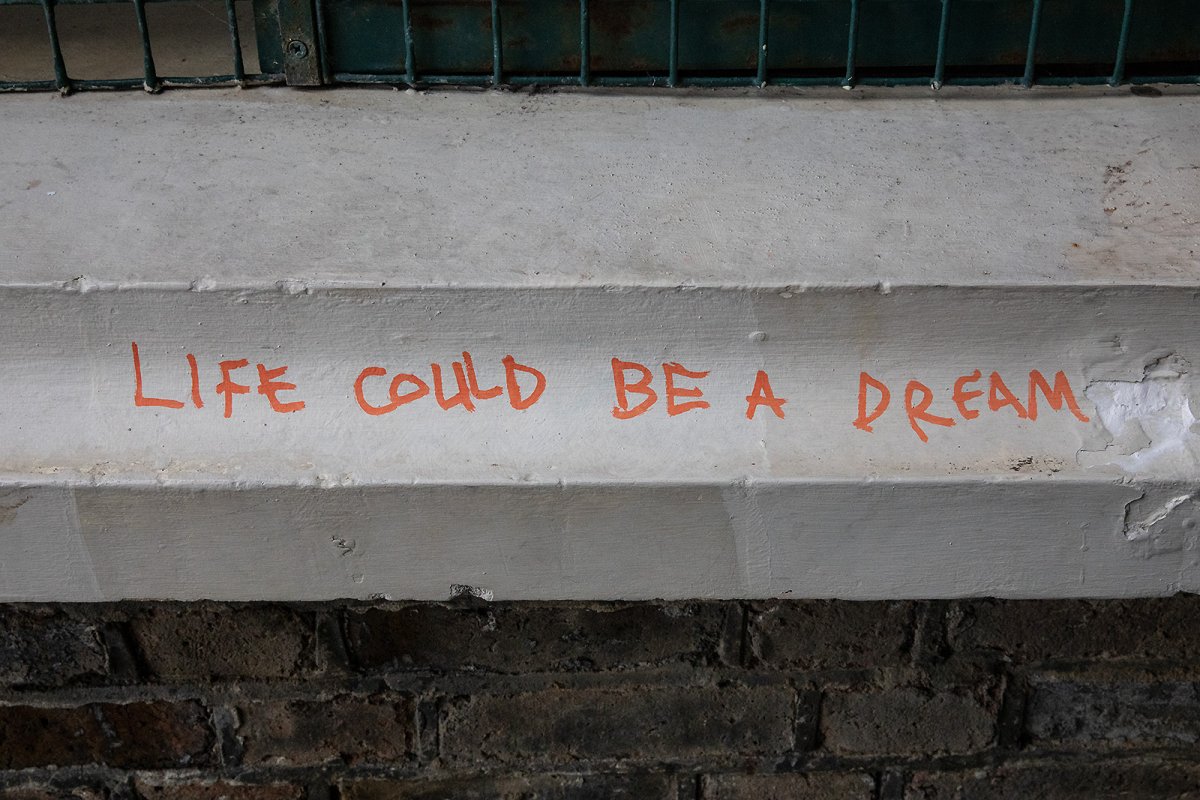 LIFE COULD BE A DREAM